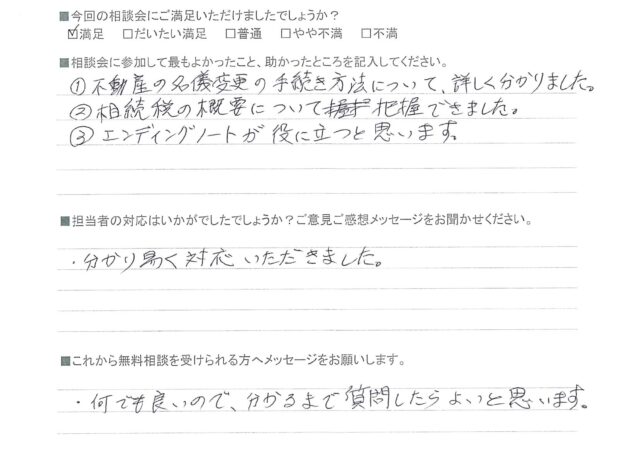 ■今回の相談会にご満足いただけましたでしょうか?
☑満足 □だいたい満足 □普通 □やや不満 □不満
■相談会に参加して最もよかったこと、助かったところを記入してください。
①不動産の名儀変更の手続き方法について、詳しく分かりました。
②相続税の概要について把握できました。
③エンディングノートが役に立つと思います。
■担当者の対応はいかがでしたでしょうか?ご意見ご感想メッセージをお聞かせください。
・分かり易く対応いただきました。
■これから無料相談を受けられる方へメッセージをお願いします。
・何でも良いので、分かるまで質問したらよいと思います。